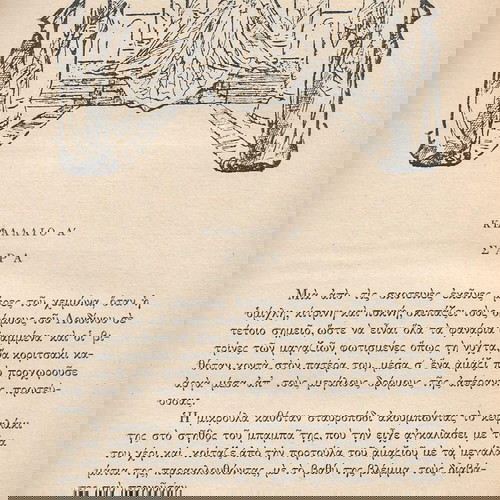 ΚΕΦΑΛΑΙΟ Α΄
ΣΑΡΑ
Μιὰ ἀπὸ τὶς σκοτεινὲς ἐκεῖνες
μέρες τοῦ χειμώνα, ὅταν ἡ
ὁμίχλη, κίτρινη καὶ πυκνή, σκεπάζει τοὺς
δρόμους τοῦ Λονδίνου σὲ
τέτοιο σημεῖο, ὥστε νὰ εἶναι ὅλα τὰ φανάρια
ἀναμμένα καὶ οἱ βι
τρίνες τῶν μαγαζιῶν φωτισμένες ὅπως τὴ νύχτα,
ἕνα κοριτσάκι κα
θόταν κοντὰ στὸν πατέρα του μέσα σ᾿ ἕνα ἁμάξι
ποὺ προχωροῦσε
μέσα ἀπ᾿ τοὺς μεγάλους δρόμους τῆς ἀπέραντης
πρωτεύ
ουσας.
Ἡ μικρούλα καθόταν σταυροπόδι ἀκουμπώντας τὸ κεφ
της στὸ στῆθος τοῦ μπαμπᾶ της, ποὺ τὴν εἶχε ἀγκαλιάσει μὲ τὸ
του χέρι καὶ κοίταζε ἀπὸ τὴν πορτούλα τοῦ ἁμαξιοῦ μὲ τὰ μεγάλα
μάτια της, παρακολουθώντας μὲ τὸ βαθύ της βλέμμα τοὺς διαβά